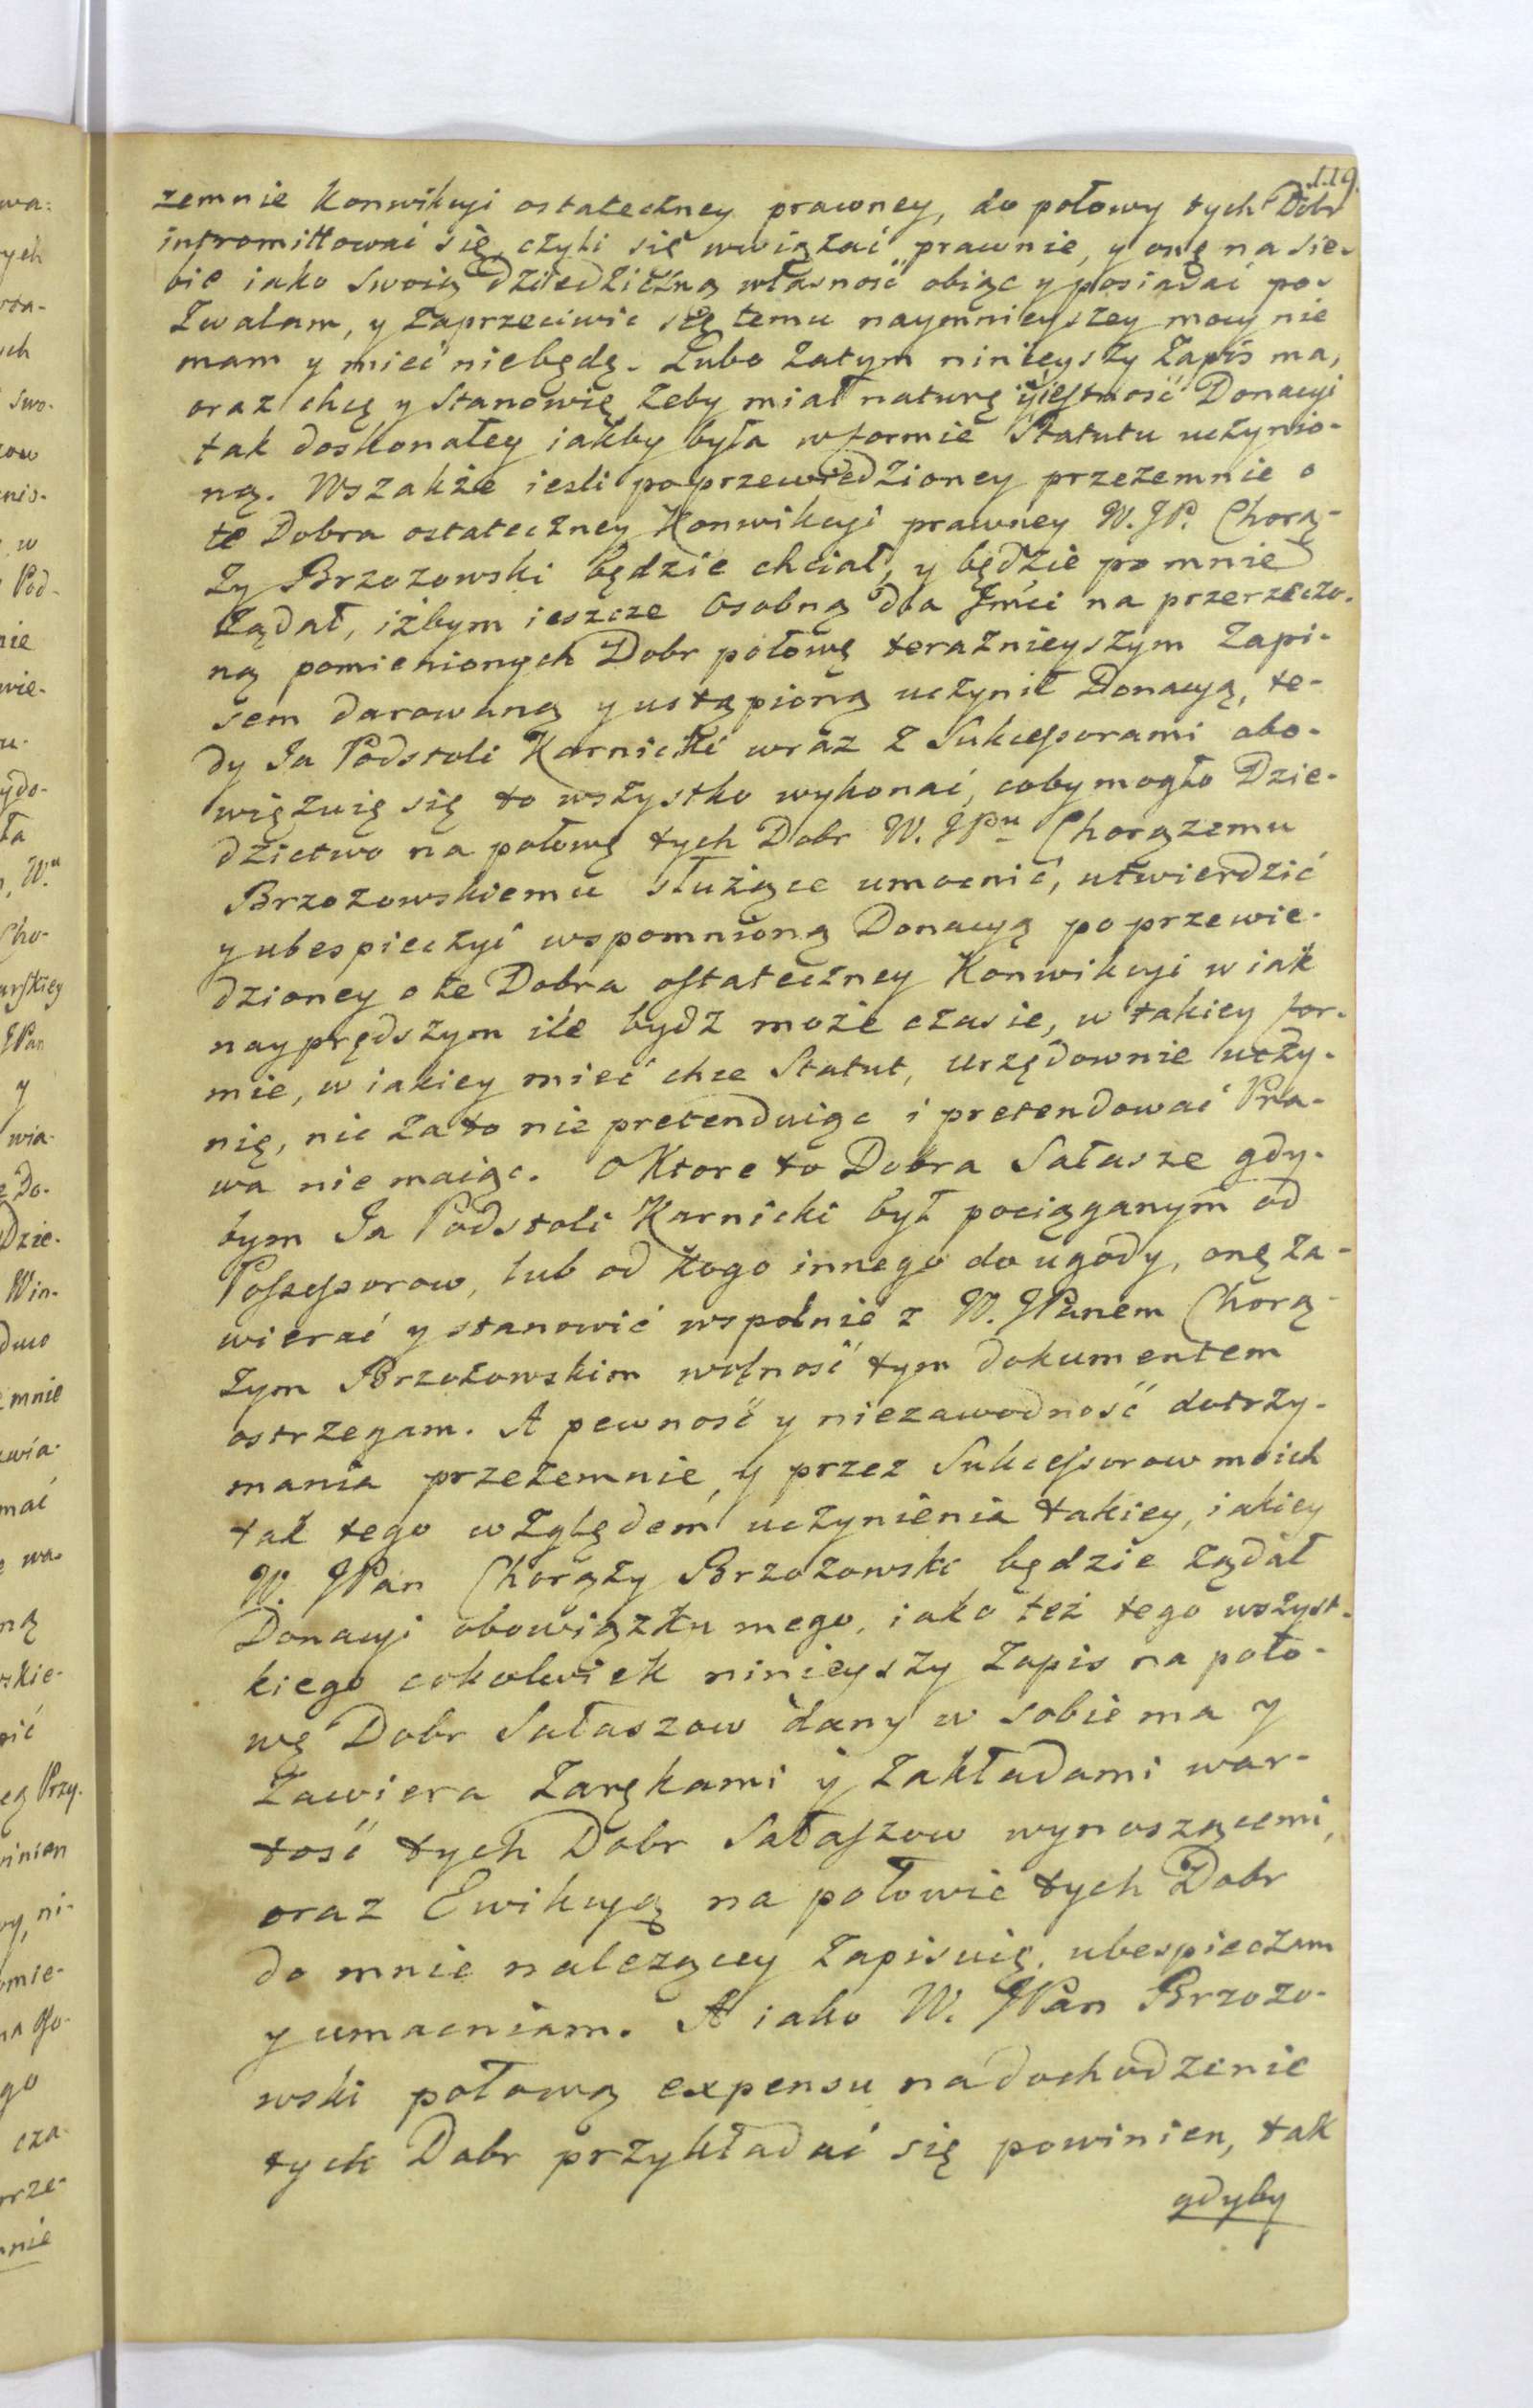 119.
zemnie Konwikcyi ostateczney prawney, do połowy tych Dobr
intromittować się, czyli się wwiązać prawnie, y onę na sie-
bie iako swoią Dziedziczną własność obiąć y posiadać po-
zwalam, y zaprzeciwić się temu naymnieyszey mocy nie
mam y mieć niebędę. Lubo zatym ninieyszy Zapis ma,
oraz chcę y stanowię, żeby miał naturę y iestność Donacyi
tak doskonałey iakby była w formie Statutu uczynio-
ną. Wszakże iesli po przewiedzioney przezemnie o
te Dobra ostateczney Konwikcyi prawney W. JP. Chorą-
ży Brzozowski będzie chciał, y będzie po mnie
żądał, iżbym ieszcze osobną dla Jmći na przerzeczo-
ną pomienionych Dobr połowę teraznieyszym Zapi-
sem darowaną y ustąpioną uczynił Donacyą, te-
dy Ja Podstoli Karnicki wraz z Sukcessorami obo-
więzuię się to wszystko wykonać, coby mogło Dzie-
dzictwo na połowę tych Dobr W. JPu Chorązemu
Brzozowskiemu służące umocnić, utwierdzić
y ubespieczyć wspomnioną Donacyą po przewie-
dzioney o te Dobra ostateczney Konwikcyi w iak
nayprędszym ile bydz może czasie, w takiey for-
mie, w iakiey mieć chce Statut, urzędownie uczy-
nię, nic za to nie pretenduiąc i pretendować Pra-
wa nie maiąc. O Ktore to Dobra Sałasze gdy-
bym Ja Podstoli Karnicki był pociąganym od
Possessorow, lub od kogo innego do ugody, onę za-
wierać y stanowić wspolnie z W. JPanem Chorą-
żym Brzozowskim wolność tym dokumentem
ostrzegam. A pewność y niezawodność dotrzy-
mania przezemnie, y przez Sukcessorow moich
tak tego względem uczynienia takiey, iakiey
W. JPan Chorąży Brzozowski będzie żądał
Donacyi obowiązku mego, iako też tego wszyst-
kiego cokolwiek ninieyszy Zapis na poło-
wę Dobr Sałaszow dany w sobie ma y
zawiera zarękami y zakładami war-
tość tych Dobr Sałaszow wynoszącemi,
oraz Ewikcyą na połowie tych Dobr
do mnie nalezącey zapisuię, ubespieczam
y umacniam. A iako W. JPan Brzozo-
wski połową expensu na dochodzenie
tych Dobr przykładać się powinien, tak
gdyby